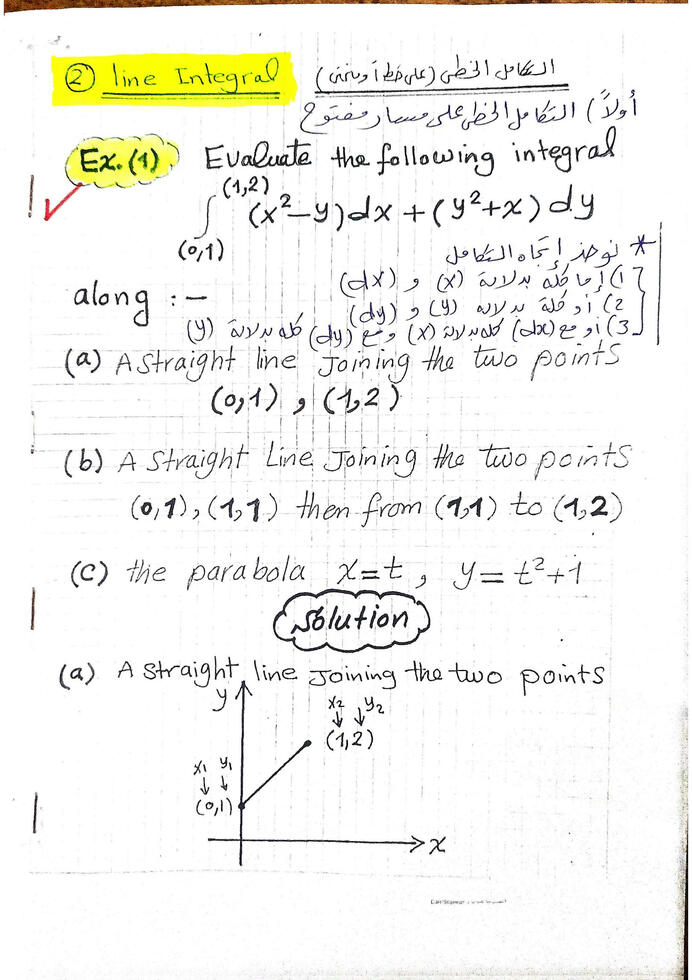 ② line Integral التكامل الخطى (على خط أو منحنى)
أولاً) التكامل الخطى على مسار مفتوح
Ex.(1) Evaluate the following integral
∫ (0,1) (1,2) (x²-y)dx + (y²+x)dy
* نوحد إتجاه التكامل
1) إما كله بدلالة (x) و (dx)
along :-
2) أو كله بدلالة (y) و (dy)
3) أو مع (dx) كله بدلالة (x) ومع (dy) كله بدلالة (y)
(a) A straight line Joining the two points
(0,1) , (1,2)
(b) A straight Line Joining the two points
(0,1), (1,1) then from (1,1) to (1,2)
(c) the parabola x=t , y=t²+1
Solution
(a) A straight line Joining the two points
y
x₂ y₂
(1,2)
x₁ y₁
(0,1)
x
CamScanner